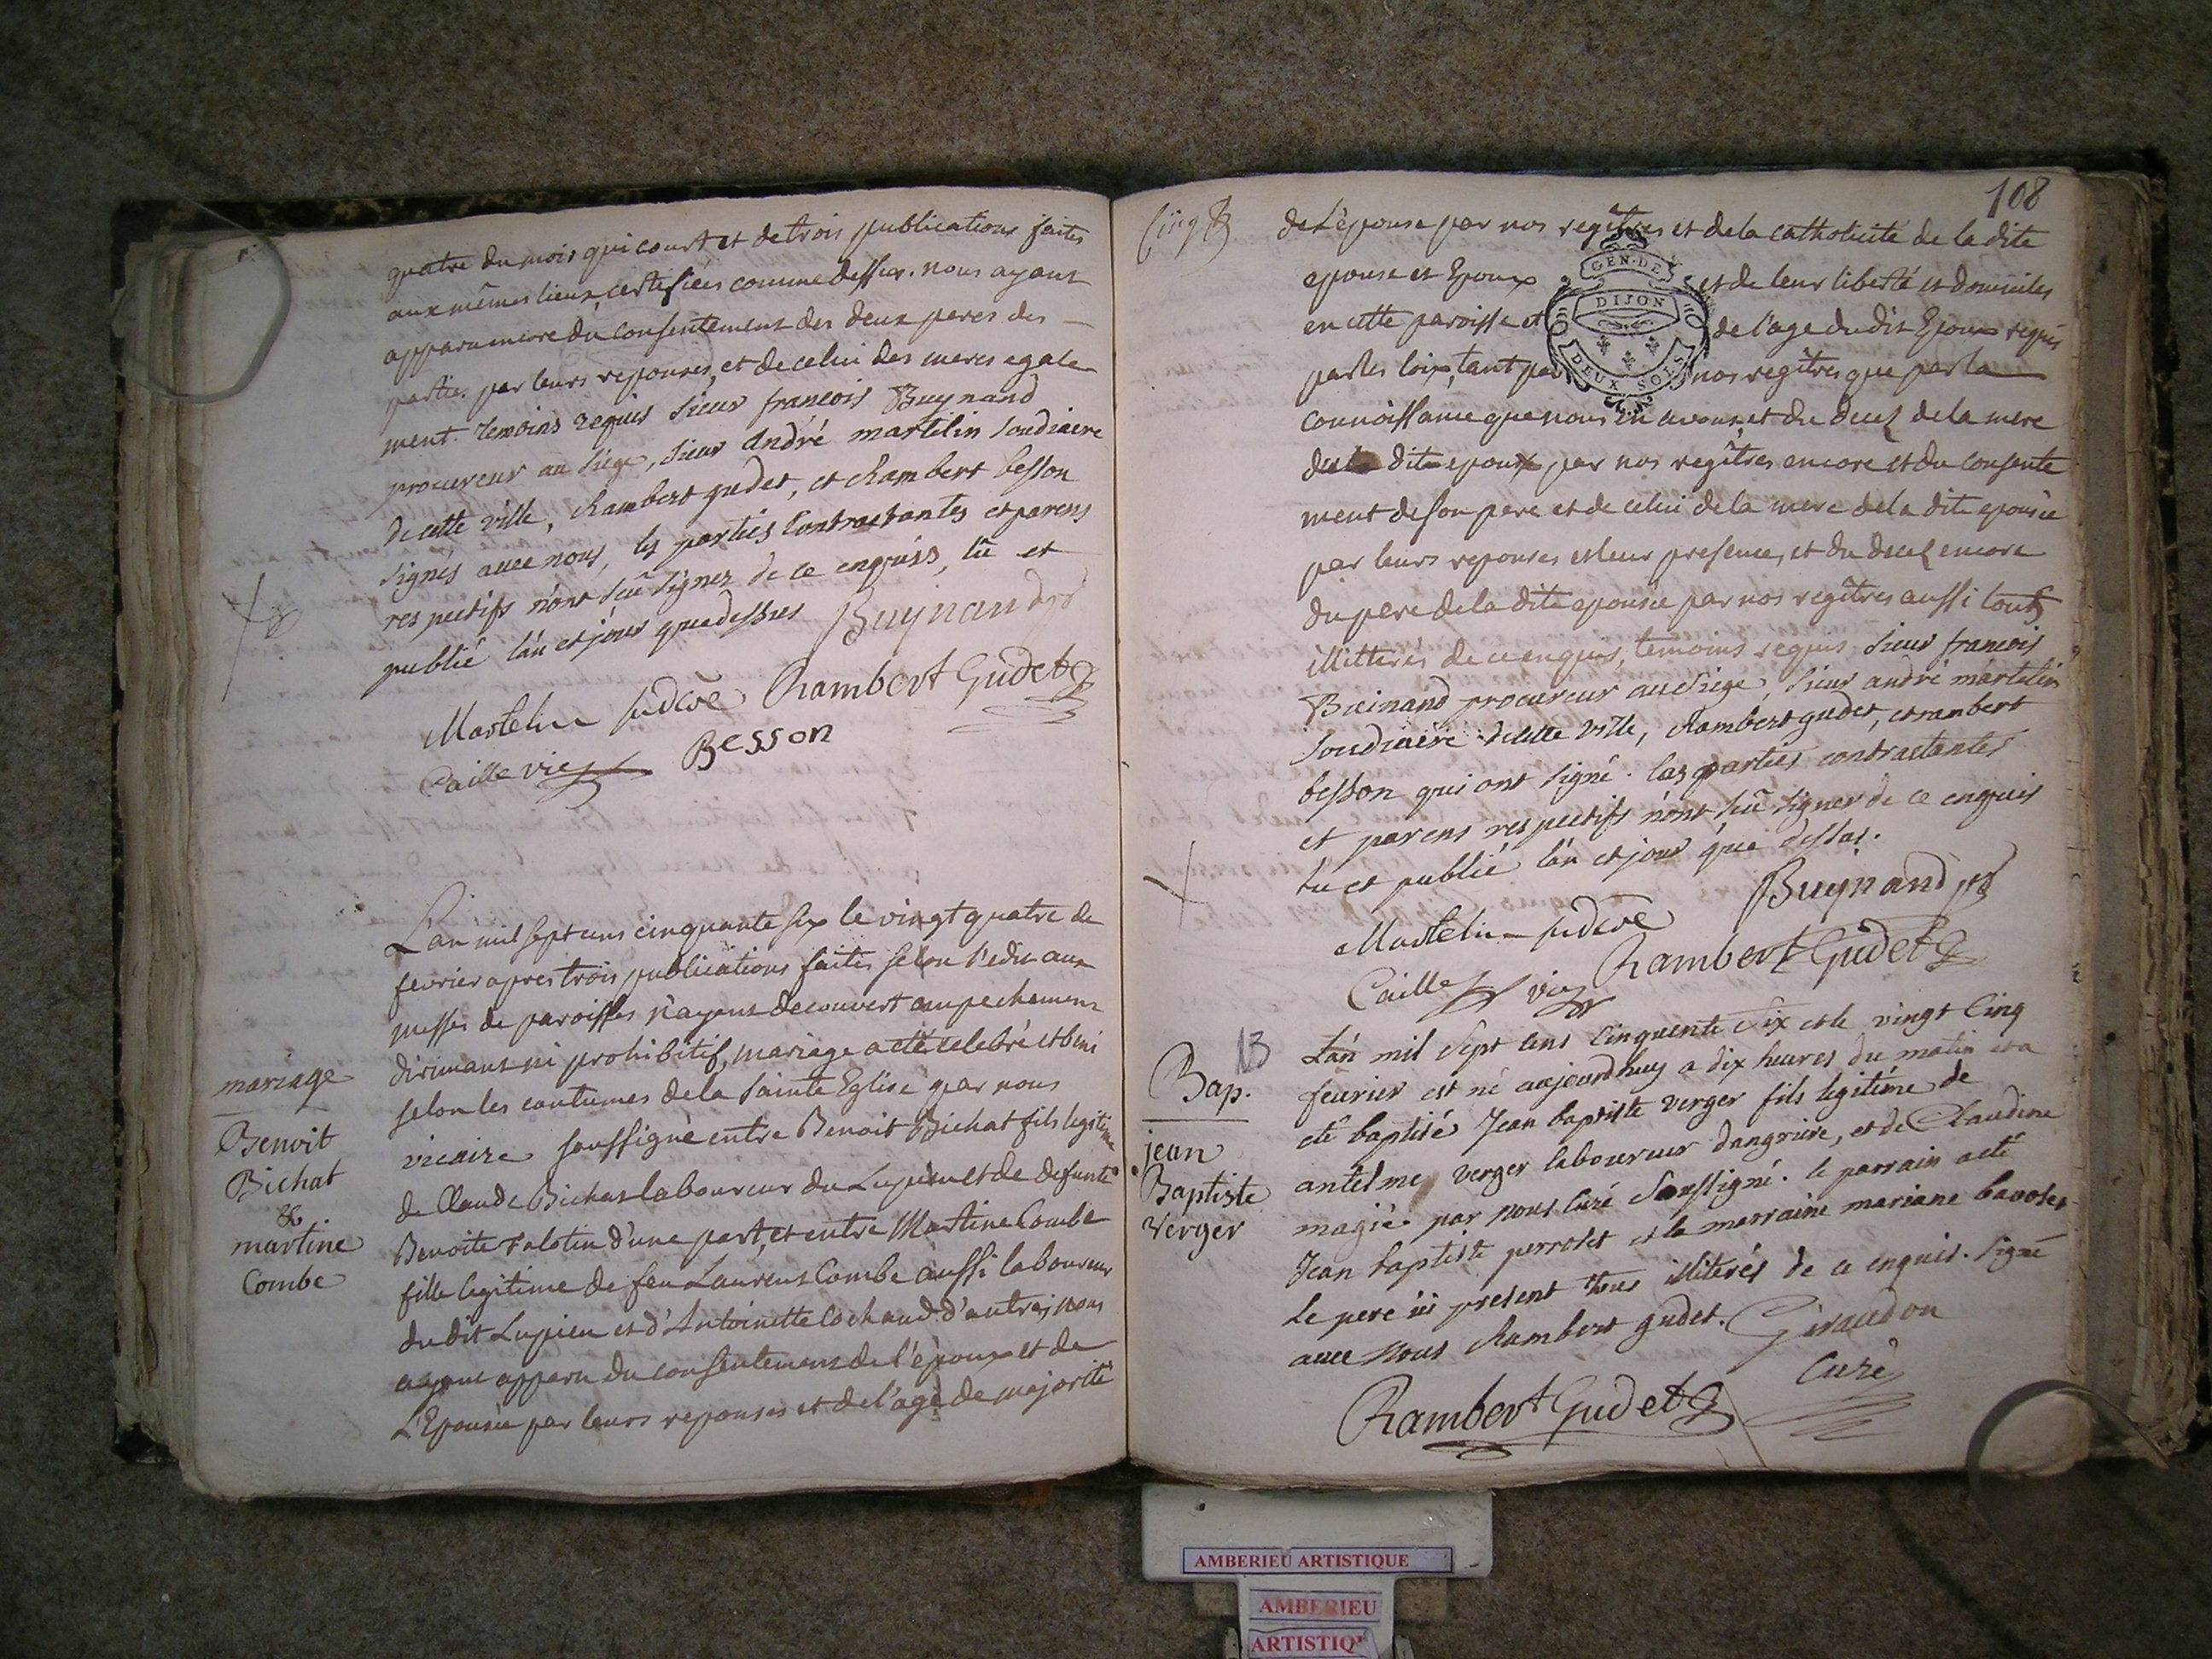 quatre du mois qui court et de trois publications faites
aux mêmes lieux, certifiées comme dessus. nous ayant
apparu encore du consentement des deux peres des
parties par leurs reponses, et de celui des meres egale
ment. temoins requis sieur francois Buynand
procureur au siege, sieur andré martelin soudiacre
de cette ville, Rambert gudet, et Rambert besson
signés avec nous, les parties contractantes et parens
respectifs n'ont sçû signer de ce enquis, lû et
publié l'an et jour que dessus Buynand
Martelin sudcre Rambert Gudet
Caille vic Besson
mariage
Benoit
Bichat
&
martine
Combe
L'an mil sept cens cinquante six le vingt quatre de
fevrier apres trois publications faites selon l'edit aux
messes de paroisses n'ayant decouvert aupechement
dirimant ni prohibitif, mariage a eté celebré et beni
selon les coutumes de la sainte Eglise par nous
vicaire soussigné entre Benoit Bichat fils legitime
de Claude Bichat laboureur du Lupieu et de defunte
Benoite d'une part, et entre Martine Combe
fille legitime de feu Laurent Combe aussi laboureur
du dit Lupieu et d'Antoinette Cochaud d'autre; nous
ayant apparu du consentement de l'epoux et de
L'Epousée par leurs reponses et de l'age de majorité
108
de L'épouse par nos regîtres et de la catholicité de la dite
epouse et Epoux et de leur liberté et domiciles
en cette paroisse et de l'age du dit Epoux requis
par les loix, tant par nos regîtres que par la
GEN. DE
DIJON
DEUX SOLS
connoissance que nous en avons, et du decez de la mere
du dit epoux par nos regîtres encore et du consente
ment de son pere et de celui de la mere de la dite epousée
par leurs reponses et leur presence, et du decez encore
du pere de la dite epousée par nos regîtres aussi touts
illitterés de ce enquis, temoins requis sieur francois
Buinand procureur au siege, sieur andré martelin
soudiacre de cette ville, Rambert gudet, et rambert
besson qui ont signé. les parties contractantes
et parens respectifs n'ont sçû signer de ce enquis
lu et publié l'an et jour que dessus.
Martelin sudcre Buynand
Caille vic Rambert Gudet
13
Bap.
jean
Baptiste
Verger
L'an mil sept cens cinquente six et le vingt cinq
feurier est né aujourdhuy a dix heures du matin et a
eté baptisé Jean baptiste verger fils legitime de
antelme verger laboureur dangriere, et de Claudine
magié par nous Curé soussigné. le parrain a eté
Jean baptiste perrolet et la marraine mariane bavolet
le pere ici présent tous illiterés de ce enquis. signé
avec nous Rambert gudet. Giraudon
Curé
Rambert Gudet
AMBERIEU ARTISTIQUE
AMBERIEU
ARTISTIQ